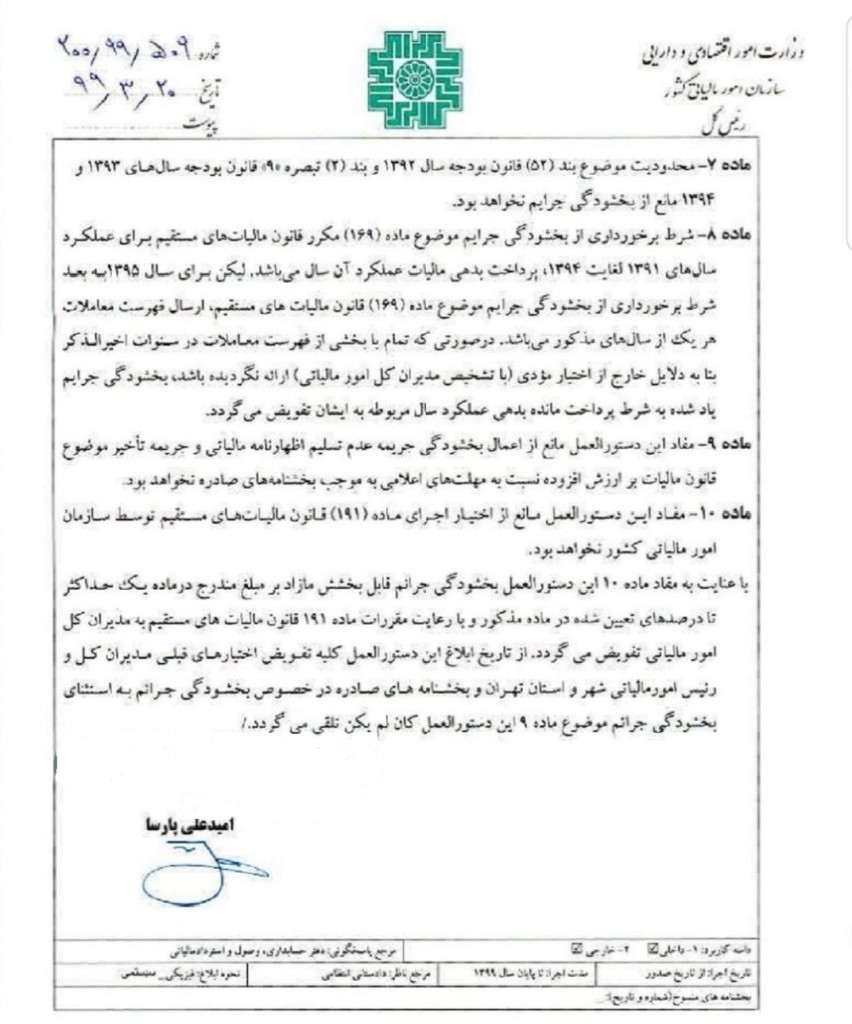 وزارت امور اقتصادی و دارایی
سازمان امور مالیاتی کشور
رئیس کل
شماره ۲۰۰/۹۹/۵۰۹
تاریخ ۹۹/۳/۲۰
پیوست
ماده ۷- محدودیت موضوع بند (۵۲) قانون بودجه سال ۱۳۹۲ و بند (۲) تبصره «۹» قانون بودجه سال‌های ۱۳۹۳ و
۱۳۹۴ مانع از بخشودگی جرایم نخواهد بود.
ماده ۸- شرط برخورداری از بخشودگی جرایم موضوع ماده (۱۶۹) مکرر قانون مالیات‌های مستقیم برای عملکرد
سال‌های ۱۳۹۱ لغایت ۱۳۹۴، پرداخت بدهی مالیات عملکرد آن سال می‌باشد. لیکن برای سال ۱۳۹۵به بعد
شرط برخورداری از بخشودگی جرایم موضوع ماده (۱۶۹) قانون مالیات های مستقیم، ارسال فهرست معاملات
هر یک از سال‌های مذکور می‌باشد. درصورتی که تمام یا بخشی از فهرست معاملات در سنوات اخیرالذکر
بنا به دلایل خارج از اختیار مؤدی (با تشخیص مدیران کل امور مالیاتی) ارائه نگردیده باشد، بخشودگی جرایم
یاد شده به شرط پرداخت مانده بدهی عملکرد سال مربوطه به ایشان تفویض می‌گردد.
ماده ۹- مفاد این دستورالعمل مانع از اعمال بخشودگی جریمه عدم تسلیم اظهارنامه مالیاتی و جریمه تأخیر موضوع
قانون مالیات بر ارزش افزوده نسبت به مهلت‌های اعلامی به موجب بخشنامه‌های صادره نخواهد بود.
ماده ۱۰- مفاد این دستورالعمل مانع از اختیار اجرای ماده (۱۹۱) قانون مالیات‌های مستقیم توسط سازمان
امور مالیاتی کشور نخواهد بود.
با عنایت به مفاد ماده ۱۰ این دستورالعمل بخشودگی جرائم قابل بخشش مازاد بر مبلغ مندرج درماده یک حداکثر
تا درصدهای تعیین شده در ماده مذکور و با رعایت مقررات ماده ۱۹۱ قانون مالیات های مستقیم به مدیران کل
امور مالیاتی تفویض می گردد. از تاریخ ابلاغ این دستورالعمل کلیه تفویض اختیارهای قبلی مدیران کل و
رئیس امورمالیاتی شهر و استان تهران و بخشنامه های صادره در خصوص بخشودگی جرائم به استثنای
بخشودگی جرائم موضوع ماده ۹ این دستورالعمل کان لم یکن تلقی می گردد./
امیدعلی پارسا
دامنه کاربرد: ۱- داخلی ☑ ۲- خارجی ☑ مرجع پاسخگوئی: دفتر حسابداری، وصول و استردادمالیاتی
تاریخ اجرا: از تاریخ صدور مدت اجرا: تا پایان سال ۱۳۹۹ مرجع ناظر: دادستانی انتظامی نحوه ابلاغ: فیزیکی_ سیستمی
بخشنامه های منسوخ(شماره و تاریخ):_